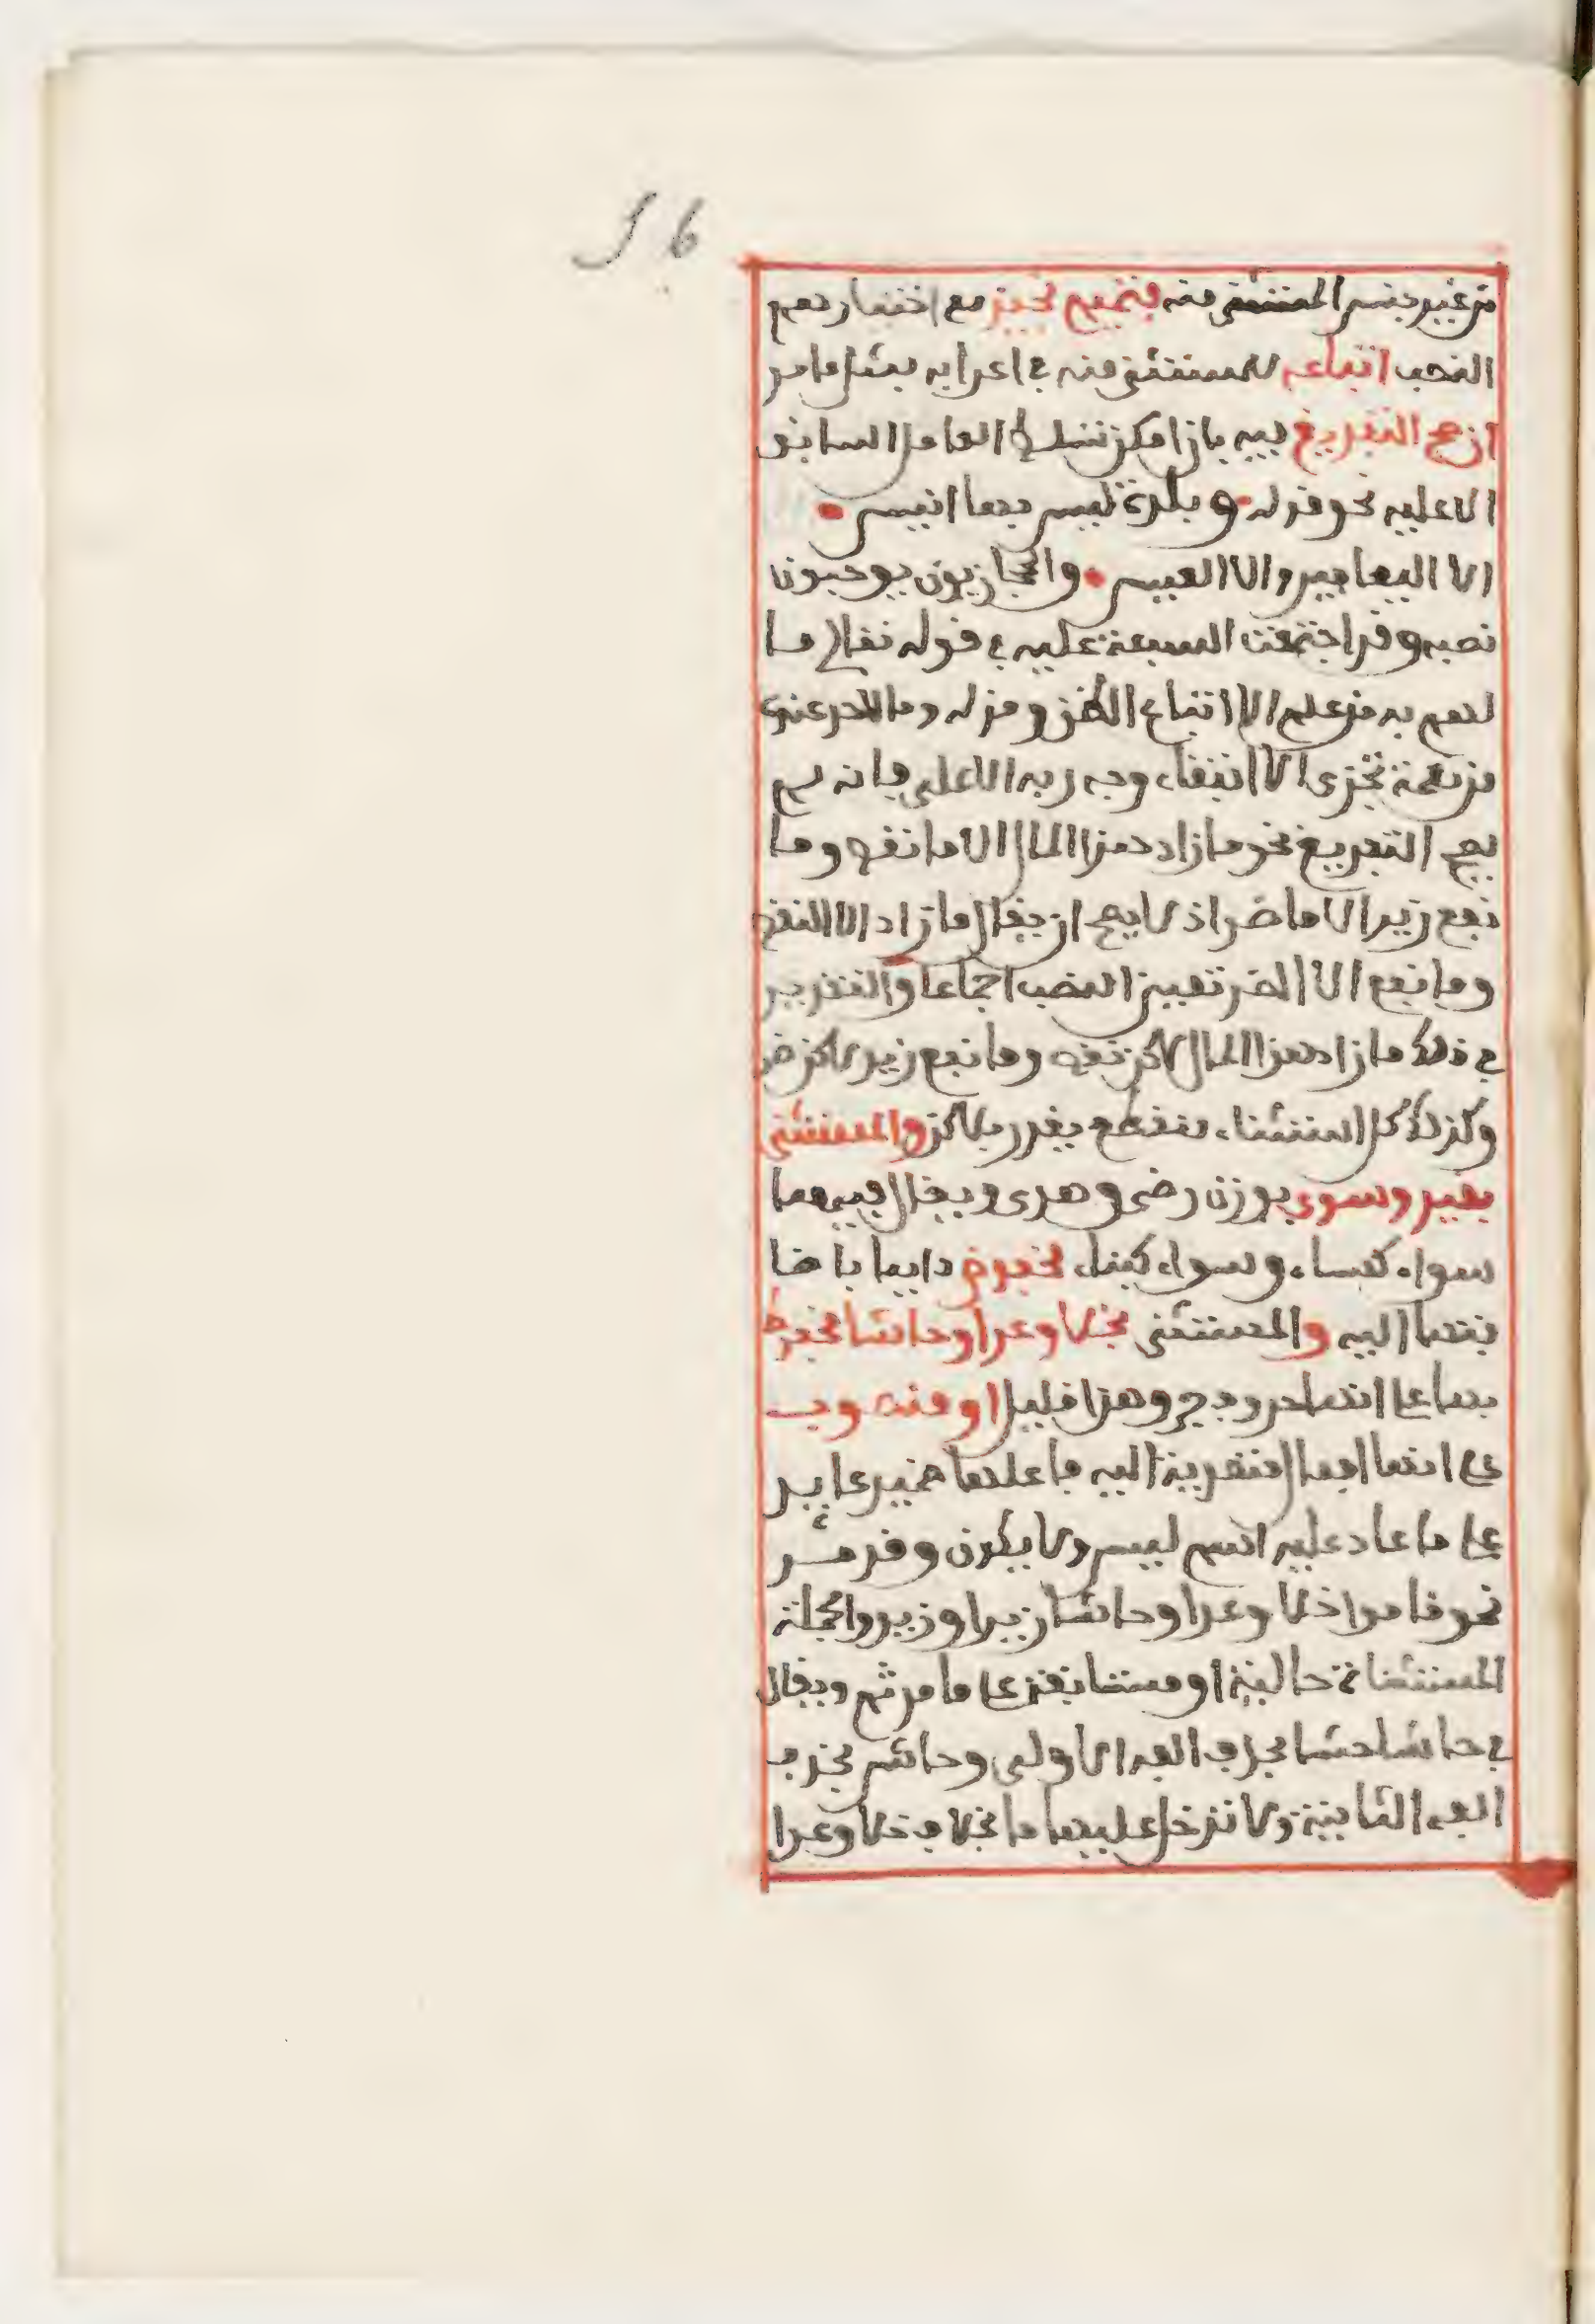 56
من غير جنس المستثنى منه فتميم تجيز مع اختيارهم
النصب اتباعه للمستثنى منه في اعرابه بمثل ما مر
ان صح التفريغ فيه بان امكن تسلط العامل السابق
الا عليه نحو قوله وبلدة ليس بها انيس
الا اليعافير والا العيس والحجازيون يوجبون
نصبه وقد اجتمعت السبعة عليه في قوله تعالى ما
لهم به من علم الا اتباع الظن ومن له وما لاحد عنده
من نعمة تجزى الا ابتغاء وجه ربه الاعلى فان لم
يصح التفريغ نحو ما زاد هذا المال الا ما نقص وما
نفع زيد الا ما ضر اذ لا يصح ان يقال ما زاد الا النقص
وما نفع الا الضر تعين النصب اجماعا والتقدير
في ذلك ما زاد هذا المال لاكن نقص وما نفع زيد لاكن ضر
وكذلك كل استثناء منقطع يقدر بلاكن والمستثنى
بغير وسوى بوزن رضى وهدى ويقال فيهما
سواء كسماء وسواء كبناء مخفوض دايما باضا
فتهما اليه والمستثنى بخلا وعدا وحاشا مخفوض
بها على انها حروف جر وهذا قليل او منصوب
على انها افعال متعدية اليه فاعلها ضمير عايد
على ما عاد عليه اسم ليس ولا يكون وقد مر
نحو قاموا خلا وعدا وحاشا زيدا وزيد والجملة
المستثناة حالية او مستانفة على ما مر ثم ويقال
في حاشا حشا بحذف الفه الاولى وحاش بحذف
الفه الثانية ولا تدخل عليها ما بخلاف خلا وعدا